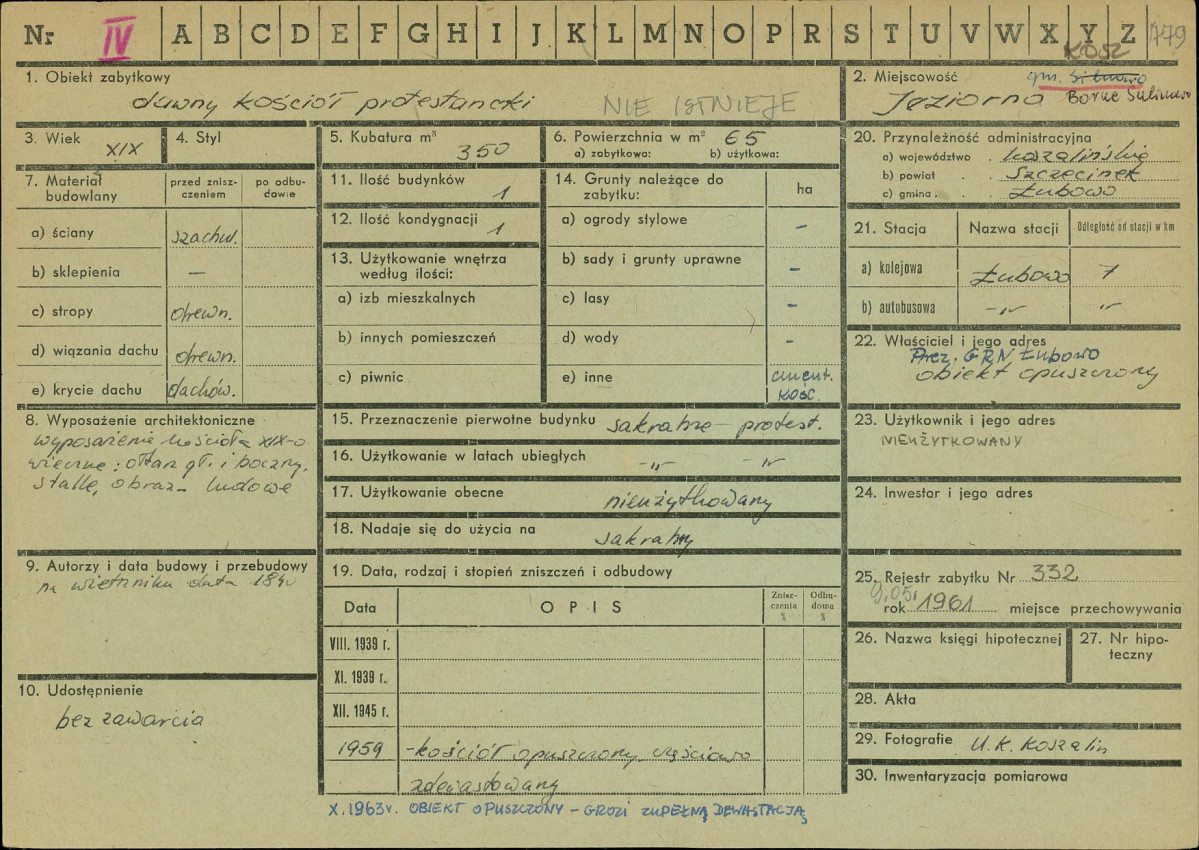 Nr IV A B C D E F G H I J K L M N O P R S T U V W X Y Z 179
KOSZ
1. Obiekt zabytkowy
dawny kościół protestancki NIE ISTNIEJE
2. Miejscowość gm. Silnowo
Jeziorna Borne Sulinowo
3. Wiek XIX
4. Styl
5. Kubatura m³ 350
6. Powierzchnia w m² 65
a) zabytkowa: b) użytkowa:
7. Materiał budowlany
przed zniszczeniem
po odbudowie
a) ściany szachul.
b) sklepienia —
c) stropy drewn.
d) wiązania dachu drewn.
e) krycie dachu dachów.
8. Wyposażenie architektoniczne
wyposażenie kościoła XIX-o
wieczne: ołtarz gł. i boczny,
stalle, obraz – ludowe
9. Autorzy i data budowy i przebudowy
na wietrzniku data 1840
10. Udostępnienie
bez zawarcia
11. Ilość budynków 1
12. Ilość kondygnacji 1
13. Użytkowanie wnętrza
według ilości:
a) izb mieszkalnych
b) innych pomieszczeń
c) piwnic
14. Grunty należące do
zabytku: ha
a) ogrody stylowe –
b) sady i grunty uprawne –
c) lasy –
d) wody –
e) inne cment.
kość.
15. Przeznaczenie pierwotne budynku sakralne – protest.
16. Użytkowanie w latach ubiegłych -„- -„-
17. Użytkowanie obecne nieużytkowany
18. Nadaje się do użycia na sakralny
19. Data, rodzaj i stopień zniszczeń i odbudowy
Data OPIS Zniszczenia % Odbudowa %
VIII. 1939 r.
XI. 1939 r.
XII. 1945 r.
1959 -kościół opuszczony, częściowo
zdewastowany
X.1963r. OBIEKT OPUSZCZONY – GROZI ZUPEŁNĄ DEWASTACJĄ
20. Przynależność administracyjna
a) województwo . koszalińskie
b) powiat . . Szczecinek
c) gmina . . Łubowo
21. Stacja Nazwa stacji Odległość od stacji w km
a) kolejowa Łubowo 7
b) autobusowa -„- -„-
22. Właściciel i jego adres
Prez. GRN Łubowo
obiekt opuszczony
23. Użytkownik i jego adres
NIEUŻYTKOWANY
24. Inwestor i jego adres
25. Rejestr zabytku Nr 332
9.05. rok 1961 miejsce przechowywania
26. Nazwa księgi hipotecznej
27. Nr hipoteczny
28. Akta
29. Fotografie U.K. Koszalin
30. Inwentaryzacja pomiarowa